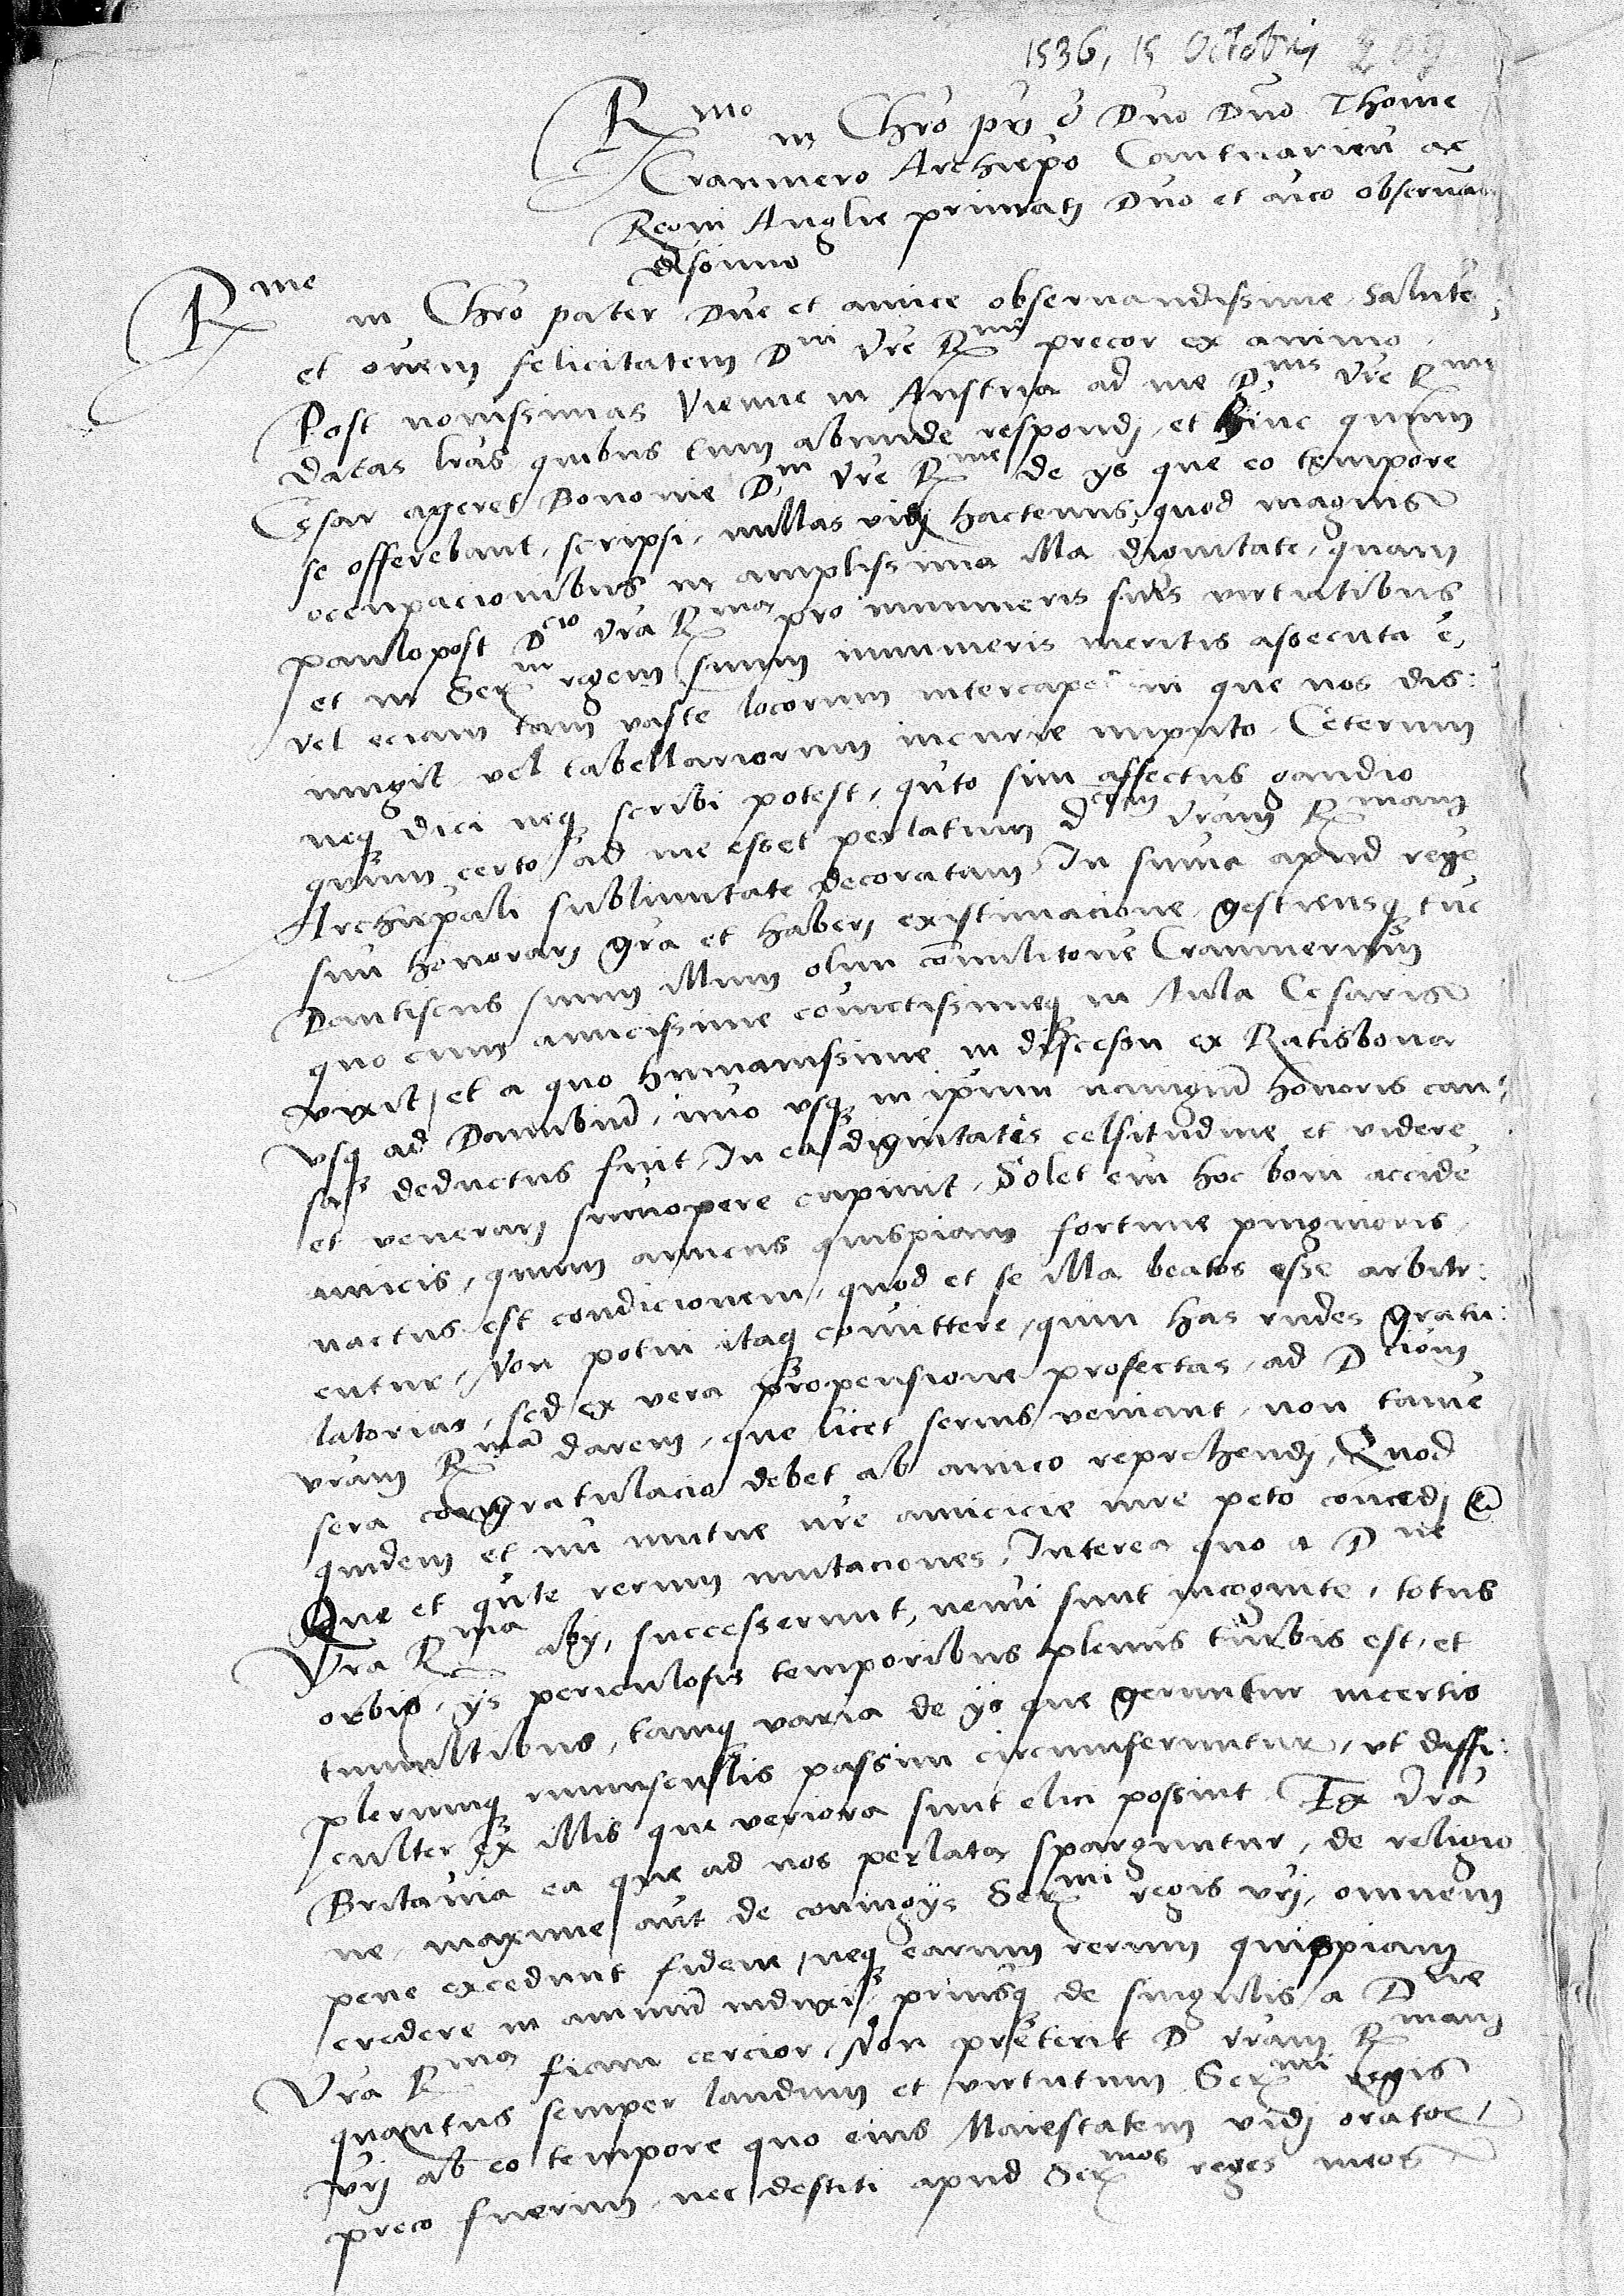 1536, 15 Octobris 209
R mo in Chro pri et Dno Dno Thome
Cranmero Archiepo Cantuarien ac
Regni Anglie primati Dno et aico observan
dissimo
R me in Chro pater Dne et amice observandissime, Salute
et omem felicitatem D ni Vre R me precor ex animo.
Post novissimas Vienne in Austria ad me D nis Vre R me
datas lras quibus tum abunde respondi, et hinc quum
Cesar ageret Bononie D ni Vre R me de ijs que eo tempore
se offerebant, scripsi, nullas vidi hactenus, quod magnis
occupacionibus in amplissima illa dignitate, quam
paulopost D cio Vra R ma pro innumeris suis virtutibus
et in Ser m regem suum innumeris meritis assecuta e,
vel eciam tam vaste locorum intercapedini que nos dis:
iungit vel tabellariorum incurie imputo. Ceterum
neq dici neq scribi potest, quto sim affectus gaudio
quum certo ad me esset perlatum D cionem Vram R mam
Archiepali sublimitate decoratam, In suma apud rege
suu honorari gra et haberj existimacione, gestiensq tuc
Dantiscus suum illum olim comilitone Cranmerum
quo cum amicissime coniunctissimeq in Aula Cesaris
vixit, et a quo humanissime in discessu ex Ratisbona
vsq ad Danubiu, imo vsq in ipsum nauigiu honoris cau:
sa deductus fuit, In ea dignitatis celsitudine et videre
et venerarj sumopere cupiuit. Solet em hoc boni accide
amicis, quum amicus quispiam fortune pinguioris
nactus est condicionem, quod et se illa beatos esse arbitr:
entur, Non potui itaq comittere, quin has rudes gratu:
latorias, sed ex vera propensione profectas, ad D cionem
vram R ma darem, que licet serius veniant, non tame
sera congratulacio debet ab amico reprehendj, Quod
quidem et mi mutue nre amicicie iure peto concedj
Que et qute rerum mutaciones, Interea quo a D ne
Vra R ma abij, successerunt, nemi sunt incognite, totus
orbis, ijs periculosis temporibus plenus turbis est, et
tumultibus, tamq varia de ijs que geruntur incertis
plerumq rumusculis passim circumferuntur, vt diffi:
culter ex illis que veriora sunt elici possint. Ex Vra
Britania ea que ad nos perlata sparguntur, de religio
ne, maxime aut de coniugijs Ser mi regis vrj, omnem
pene excedunt fidem, neq earum rerum quispiam
credere in animu induxi, priusq de singulis a D ne
Vra R ma fiam cercior, Non preterit D Vram R mam
quantus semper laudum et virtutum Ser mi regis
vrj ab eo tempore quo eius Maiestatem vidj orator,
preco fuerim, nec destiti apud Ser mos reges meos